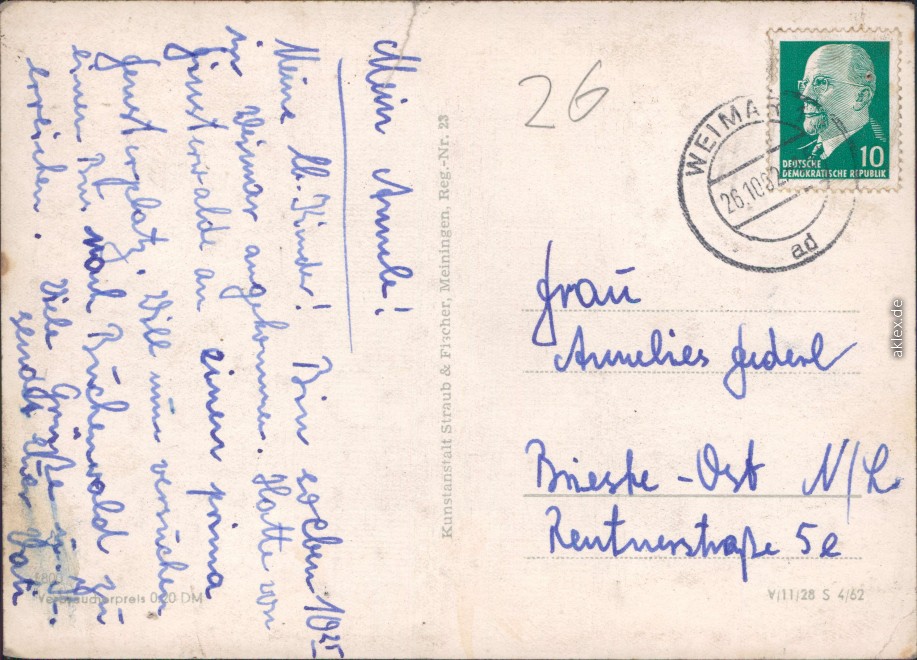 Mein Annele!
Meine lb. Kinder! Bin soeben 10 25
in Weimar angekommen. Hatte von
Finsterwalde an einen prima
Fensterplatz. Will nun versuchen
einen Bus nach Buchenwald zu
erreichen. Viele Grüße u.
sendet Euer Vati
Verbraucherpreis 0,20 DM
Kunstanstalt Straub & Fischer, Meiningen, Reg.-Nr. 23
26
WEIMAR
26.10.62
ad
10
DEUTSCHE
DEMOKRATISCHE REPUBLIK
Frau
Annelies
Brieske-Ost N/L.
Rentnerstraße 5e
V/11/28 S 4/62
aklex.de